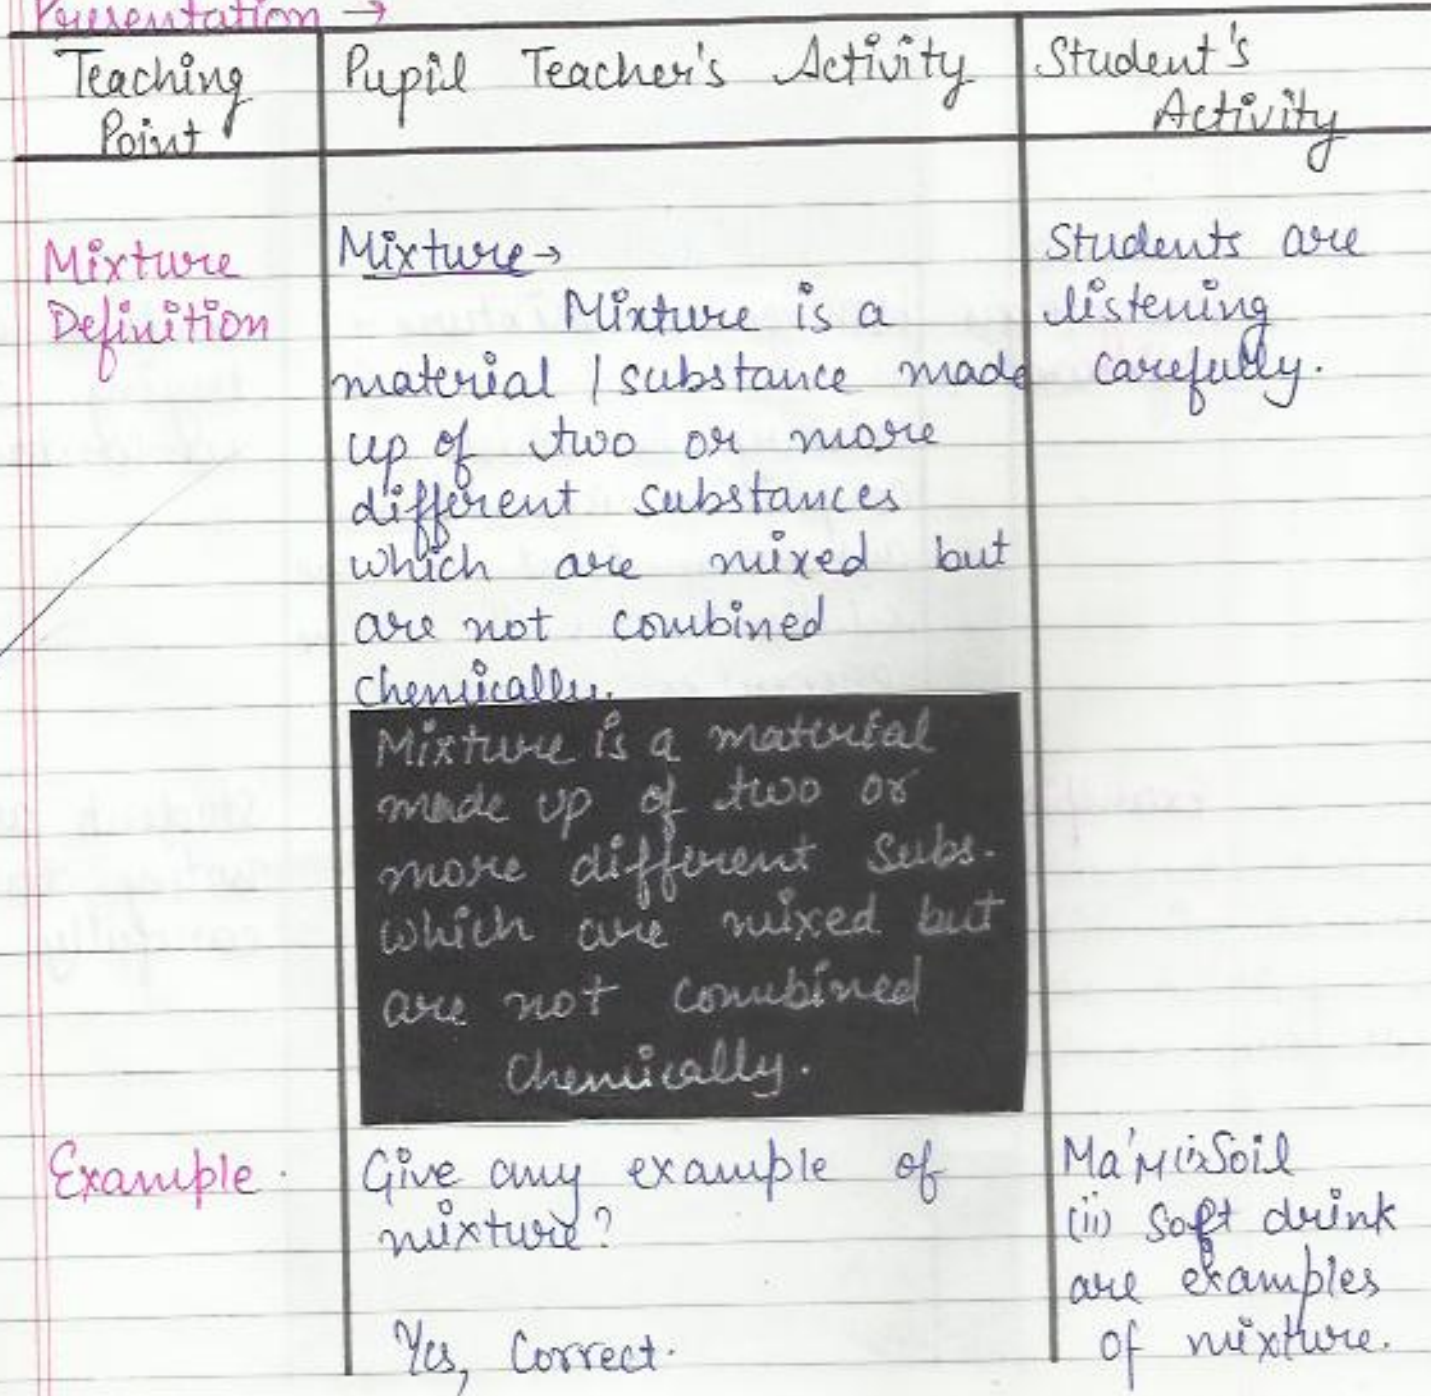 Presentation →
Teaching Point
Pupil Teacher's Activity
Student's Activity
Mixture
Definition
Mixture →
Mixture is a
material / substance made
up of two or more
different substances
which are mixed but
are not combined
chemically.
Students are
listening
carefully.
Mixture is a material
made up of two or
more different Subs.
which are mixed but
are not combined
Chemically.
Example.
Give any example of
mixture?
Yes, Correct.
Ma'M (i) Soil
(ii) Soft drink
are examples
of mixture.